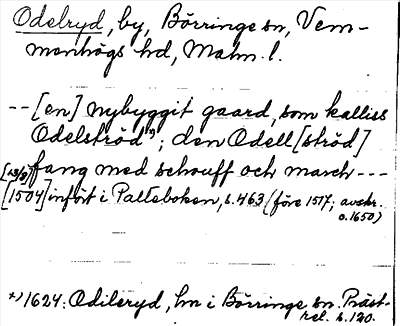 Odelryd, by, Börringe sn, Vem-
menhögs hd, Malm. l.
-- [en] nybyggit gaard, som kalliss
Odelströd *); den Odell [ströd]
fang med schouff och march ---
[1504] infört i Palteboken, s. 463 (före 1517; avskr.
o. 1650)
*) 1624: Odileryd, hm i Börringe sn. Präst-
rel. s. 120.